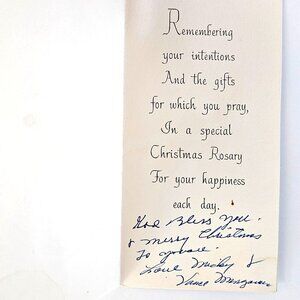 Remembering
your intentions
And the gifts
for which you pray,
In a special
Christmas Rosary
For your happiness
each day.
God Bless You.
& Merry Christmas
To you all.
Love Mickey &
Vance